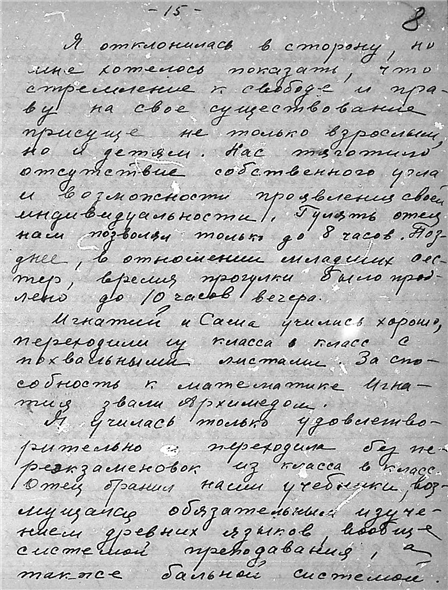 - 15 -
8
Я отклонилась в сторону, но
мне хотелось показать, что
стремление к свободе и пра-
ву на свое существование
присуще не только взрослым,
но и детям. Нас тяготило
отсутствие собственного угла
и возможности проявления своей
индивидуальности. Гулять отец
нам позволял только до 8 часов. Поз-
днее, в отношении младших сес-
тер, время прогулки было прод-
лено до 10 часов вечера.
Игнатий и Саша учились хорошо,
переходили из класса в класс с
похвальными листами. За спо-
собность к математике Игна-
тия звали Архимедом.
Я училась только удовлетво-
рительно и переходила без пе-
реэкзаменовок из класса в класс.
Отец бранил наши учебники, воз-
мущался обязательным изуче-
нием древних языков, вообще
системой преподавания, а
также бальной системой.